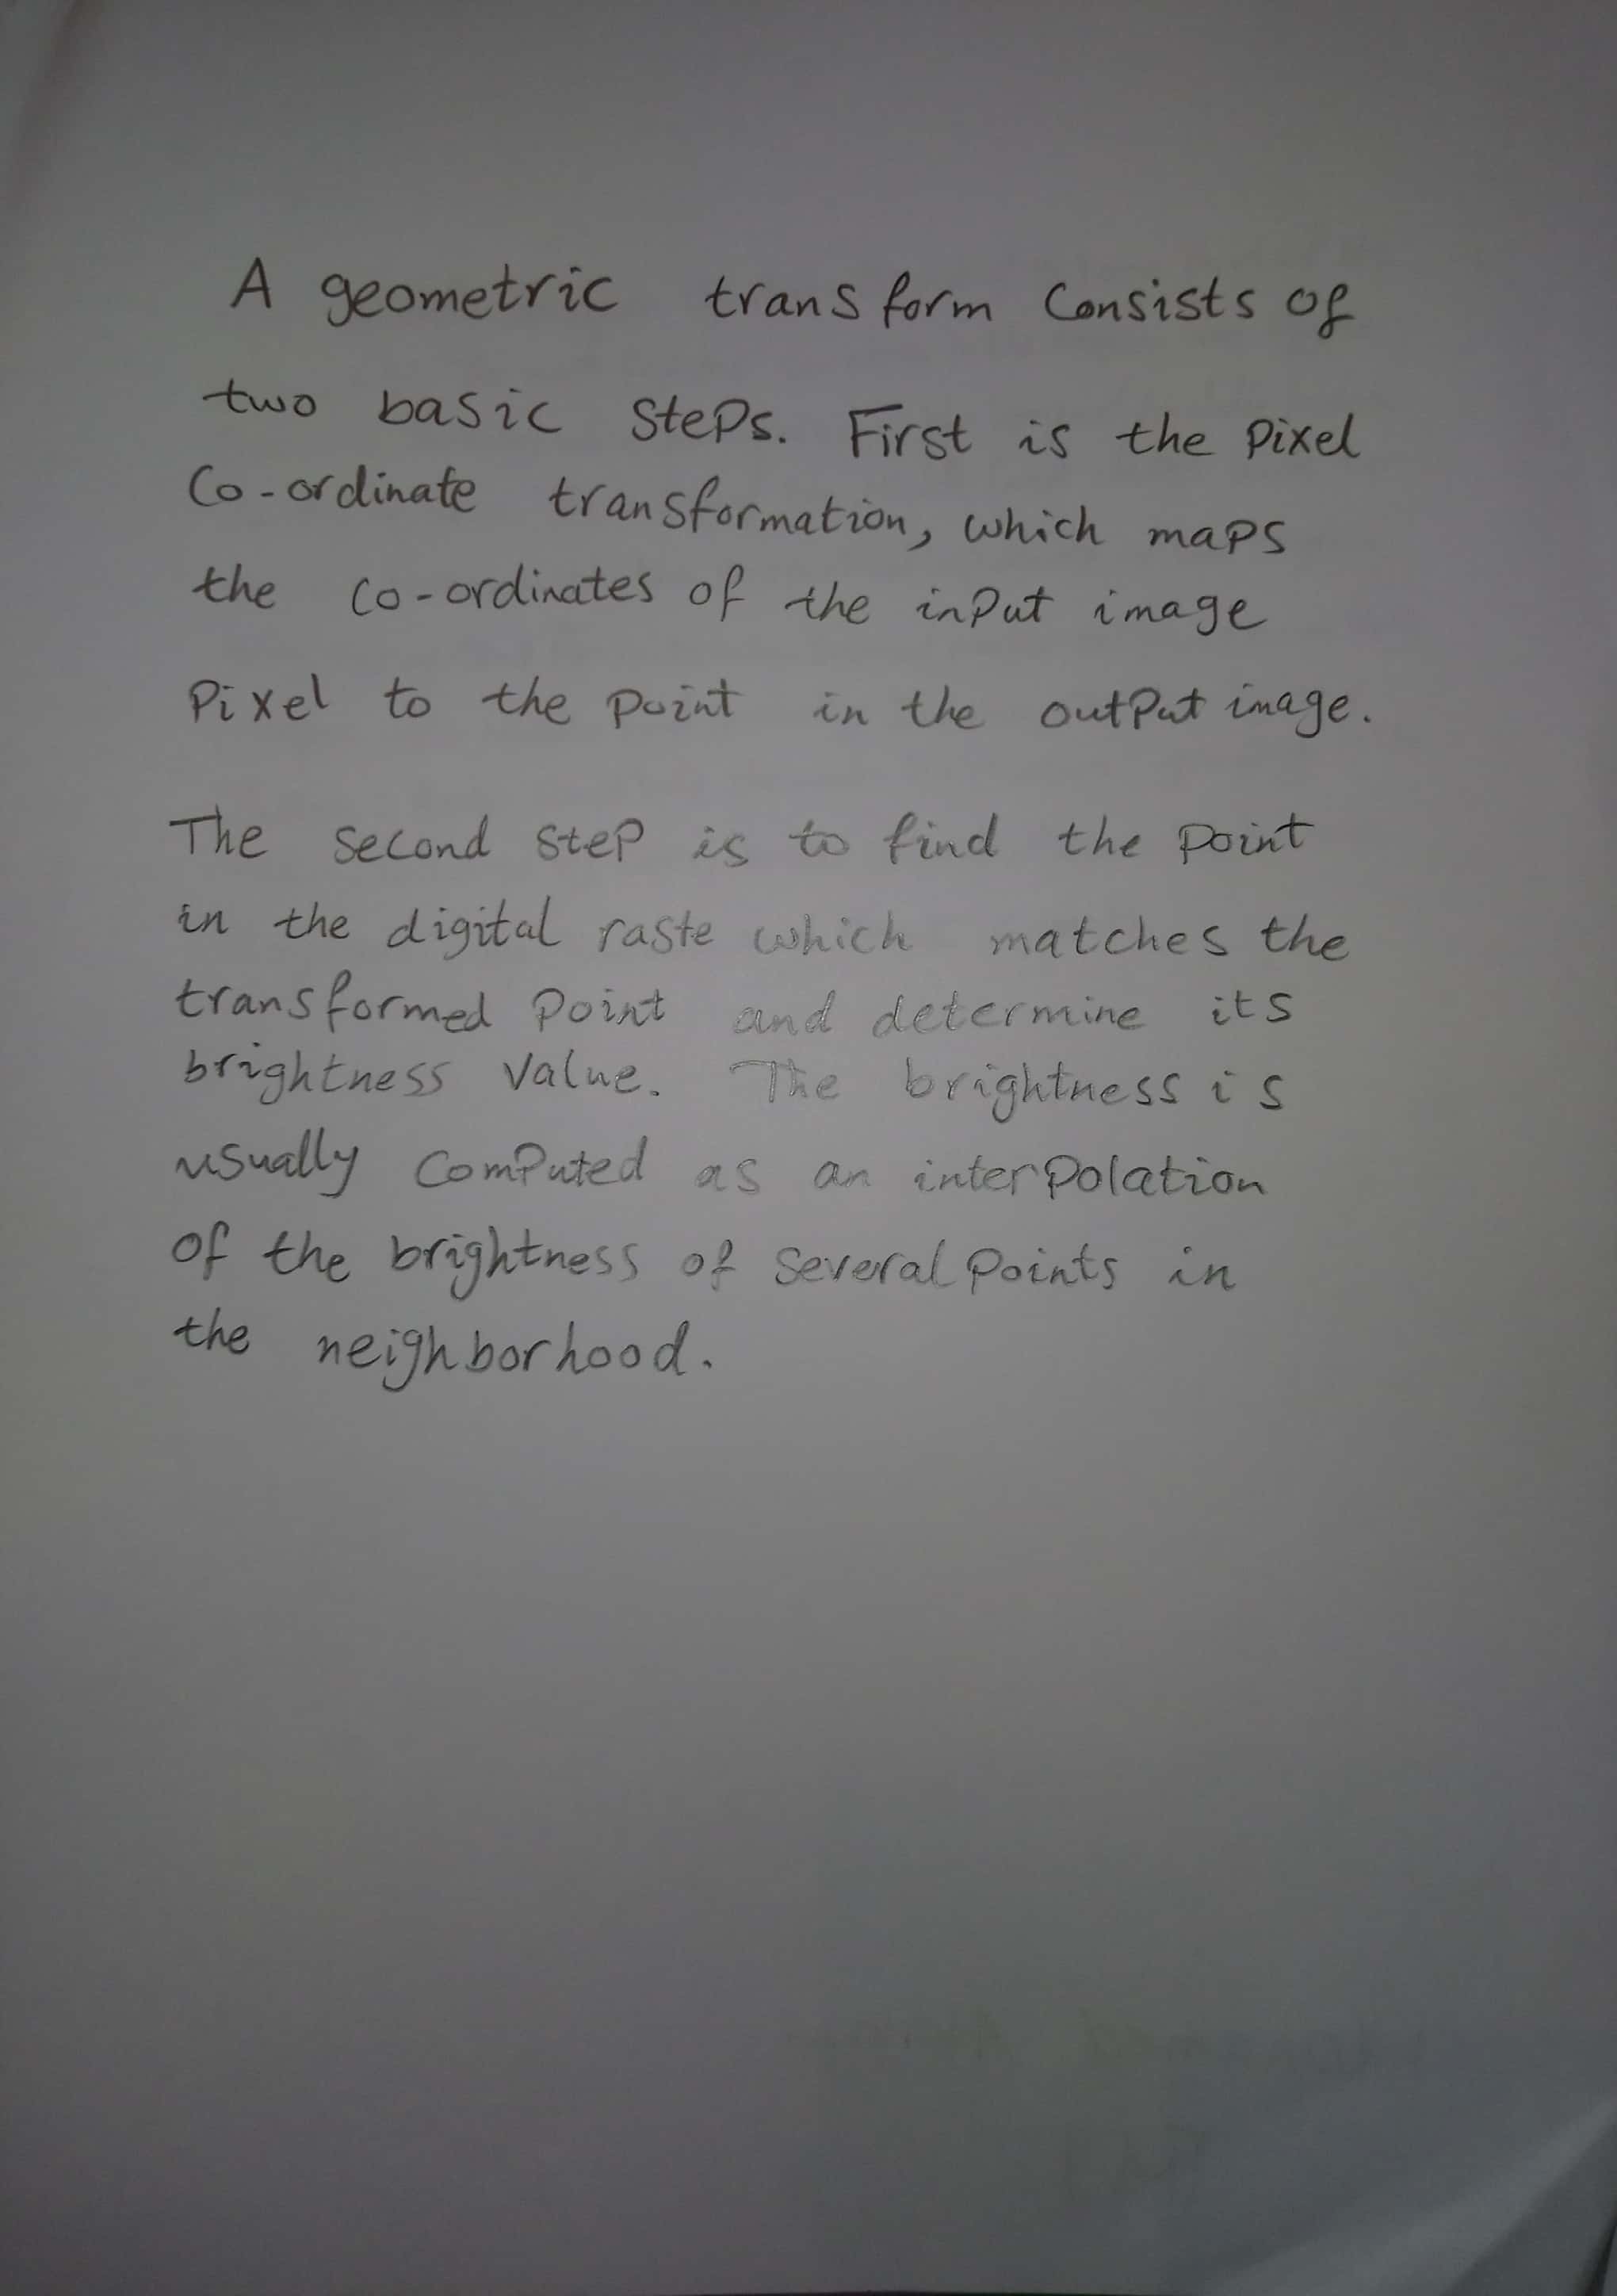 A geometric transform Consists of
two basic steps. First is the pixel
Co-ordinate transformation, which maps
the co-ordinates of the input image
Pixel to the point in the output image.
The second step is to find the point
in the digital raste which matches the
transformed Point and determine its
brightness value. The brightness is
usually Computed as an interpolation
of the brightness of several points in
the neighborhood.